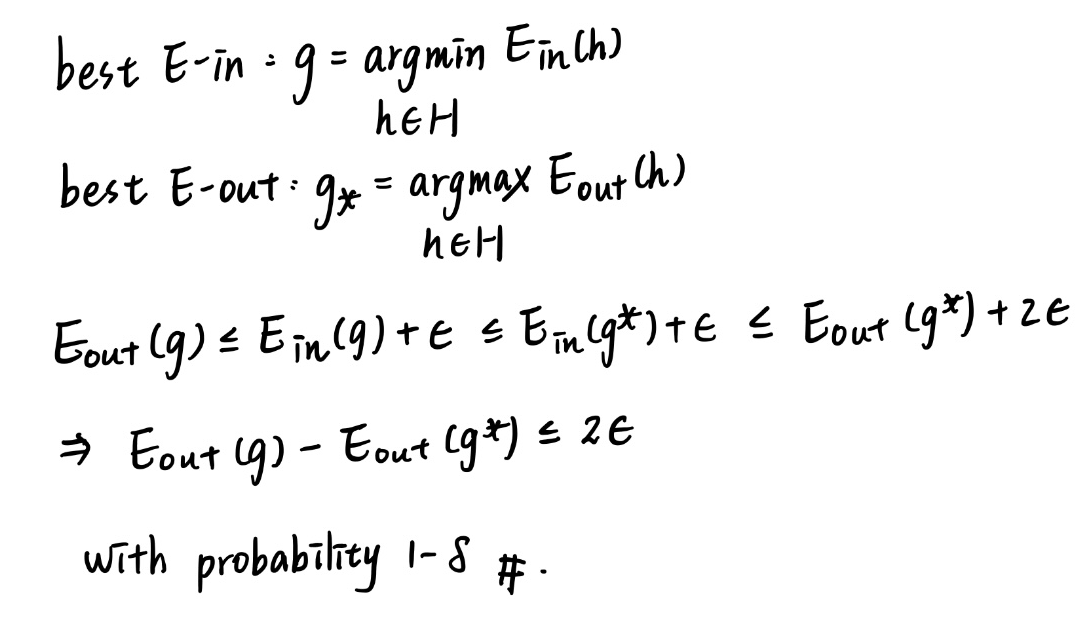 best E-in : g = argmin E_in(h)
h∈H
best E-out : g_* = argmax E_out(h)
h∈H
E_out(g) ≤ E_in(g) + ϵ ≤ E_in(g*) + ϵ ≤ E_out(g*) + 2ϵ
⇒ E_out(g) - E_out(g*) ≤ 2ϵ
with probability 1-δ #.